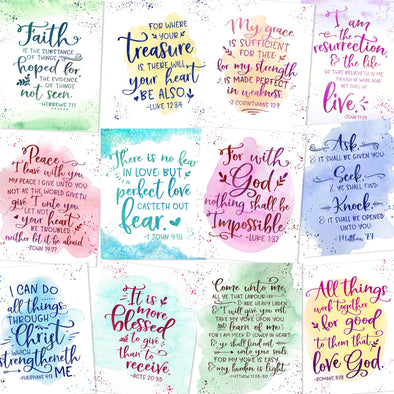 Faith
IS THE SUBSTANCE
OF THINGS
hoped for,
THE EVIDENCE
OF THINGS
not seen.
-HEBREWS 11:1
FOR WHERE
YOUR
treasure
IS, THERE WILL
your heart
BE ALSO.
-LUKE 12:34
My grace
IS SUFFICIENT
FOR THEE
for my strength
IS MADE PERFECT
in weakness.
2 CORINTHIANS 12:9
I am
THE
resurrection
& the life.
HE THAT BELIEVETH IN ME
THOUGH HE WERE DEAD,
YET SHALL HE
live.
JOHN 11:25
Peace
I leave with you
MY PEACE I GIVE UNTO YOU
NOT AS THE WORLD GIVETH
give I unto you
LET NOT
your heart
BE TROUBLED
neither let it be afraid.
JOHN 14:27
There is no fear
IN LOVE; BUT
perfect love
CASTETH OUT
fear.
-1 JOHN 4:18
For with
God
nothing shall be
Impossible
-LUKE 1:37
Ask
& IT SHALL BE GIVEN YOU
Seek
& YE SHALL FIND
Knock
& IT SHALL BE OPENED
UNTO YOU
-Matthew 7:7
I CAN DO
all things
THROUGH
Christ
WHICH
strengtheneth
ME.
-PHILIPPIANS 4:13
It is
more
blessed
to give
than to
receive.
ACTS 20:35
Come unto me,
ALL YE THAT LABOUR
& ARE HEAVY LADEN,
& I will give you rest.
TAKE MY YOKE UPON YOU
and learn of me;
FOR I AM MEEK & LOWLY IN HEART:
& ye shall find rest
unto your souls.
FOR MY YOKE IS EASY
& my burden is light.
-MATTHEW 11:28-30
All things
work together
for good
to them that
love God.
-ROMANS 8:28